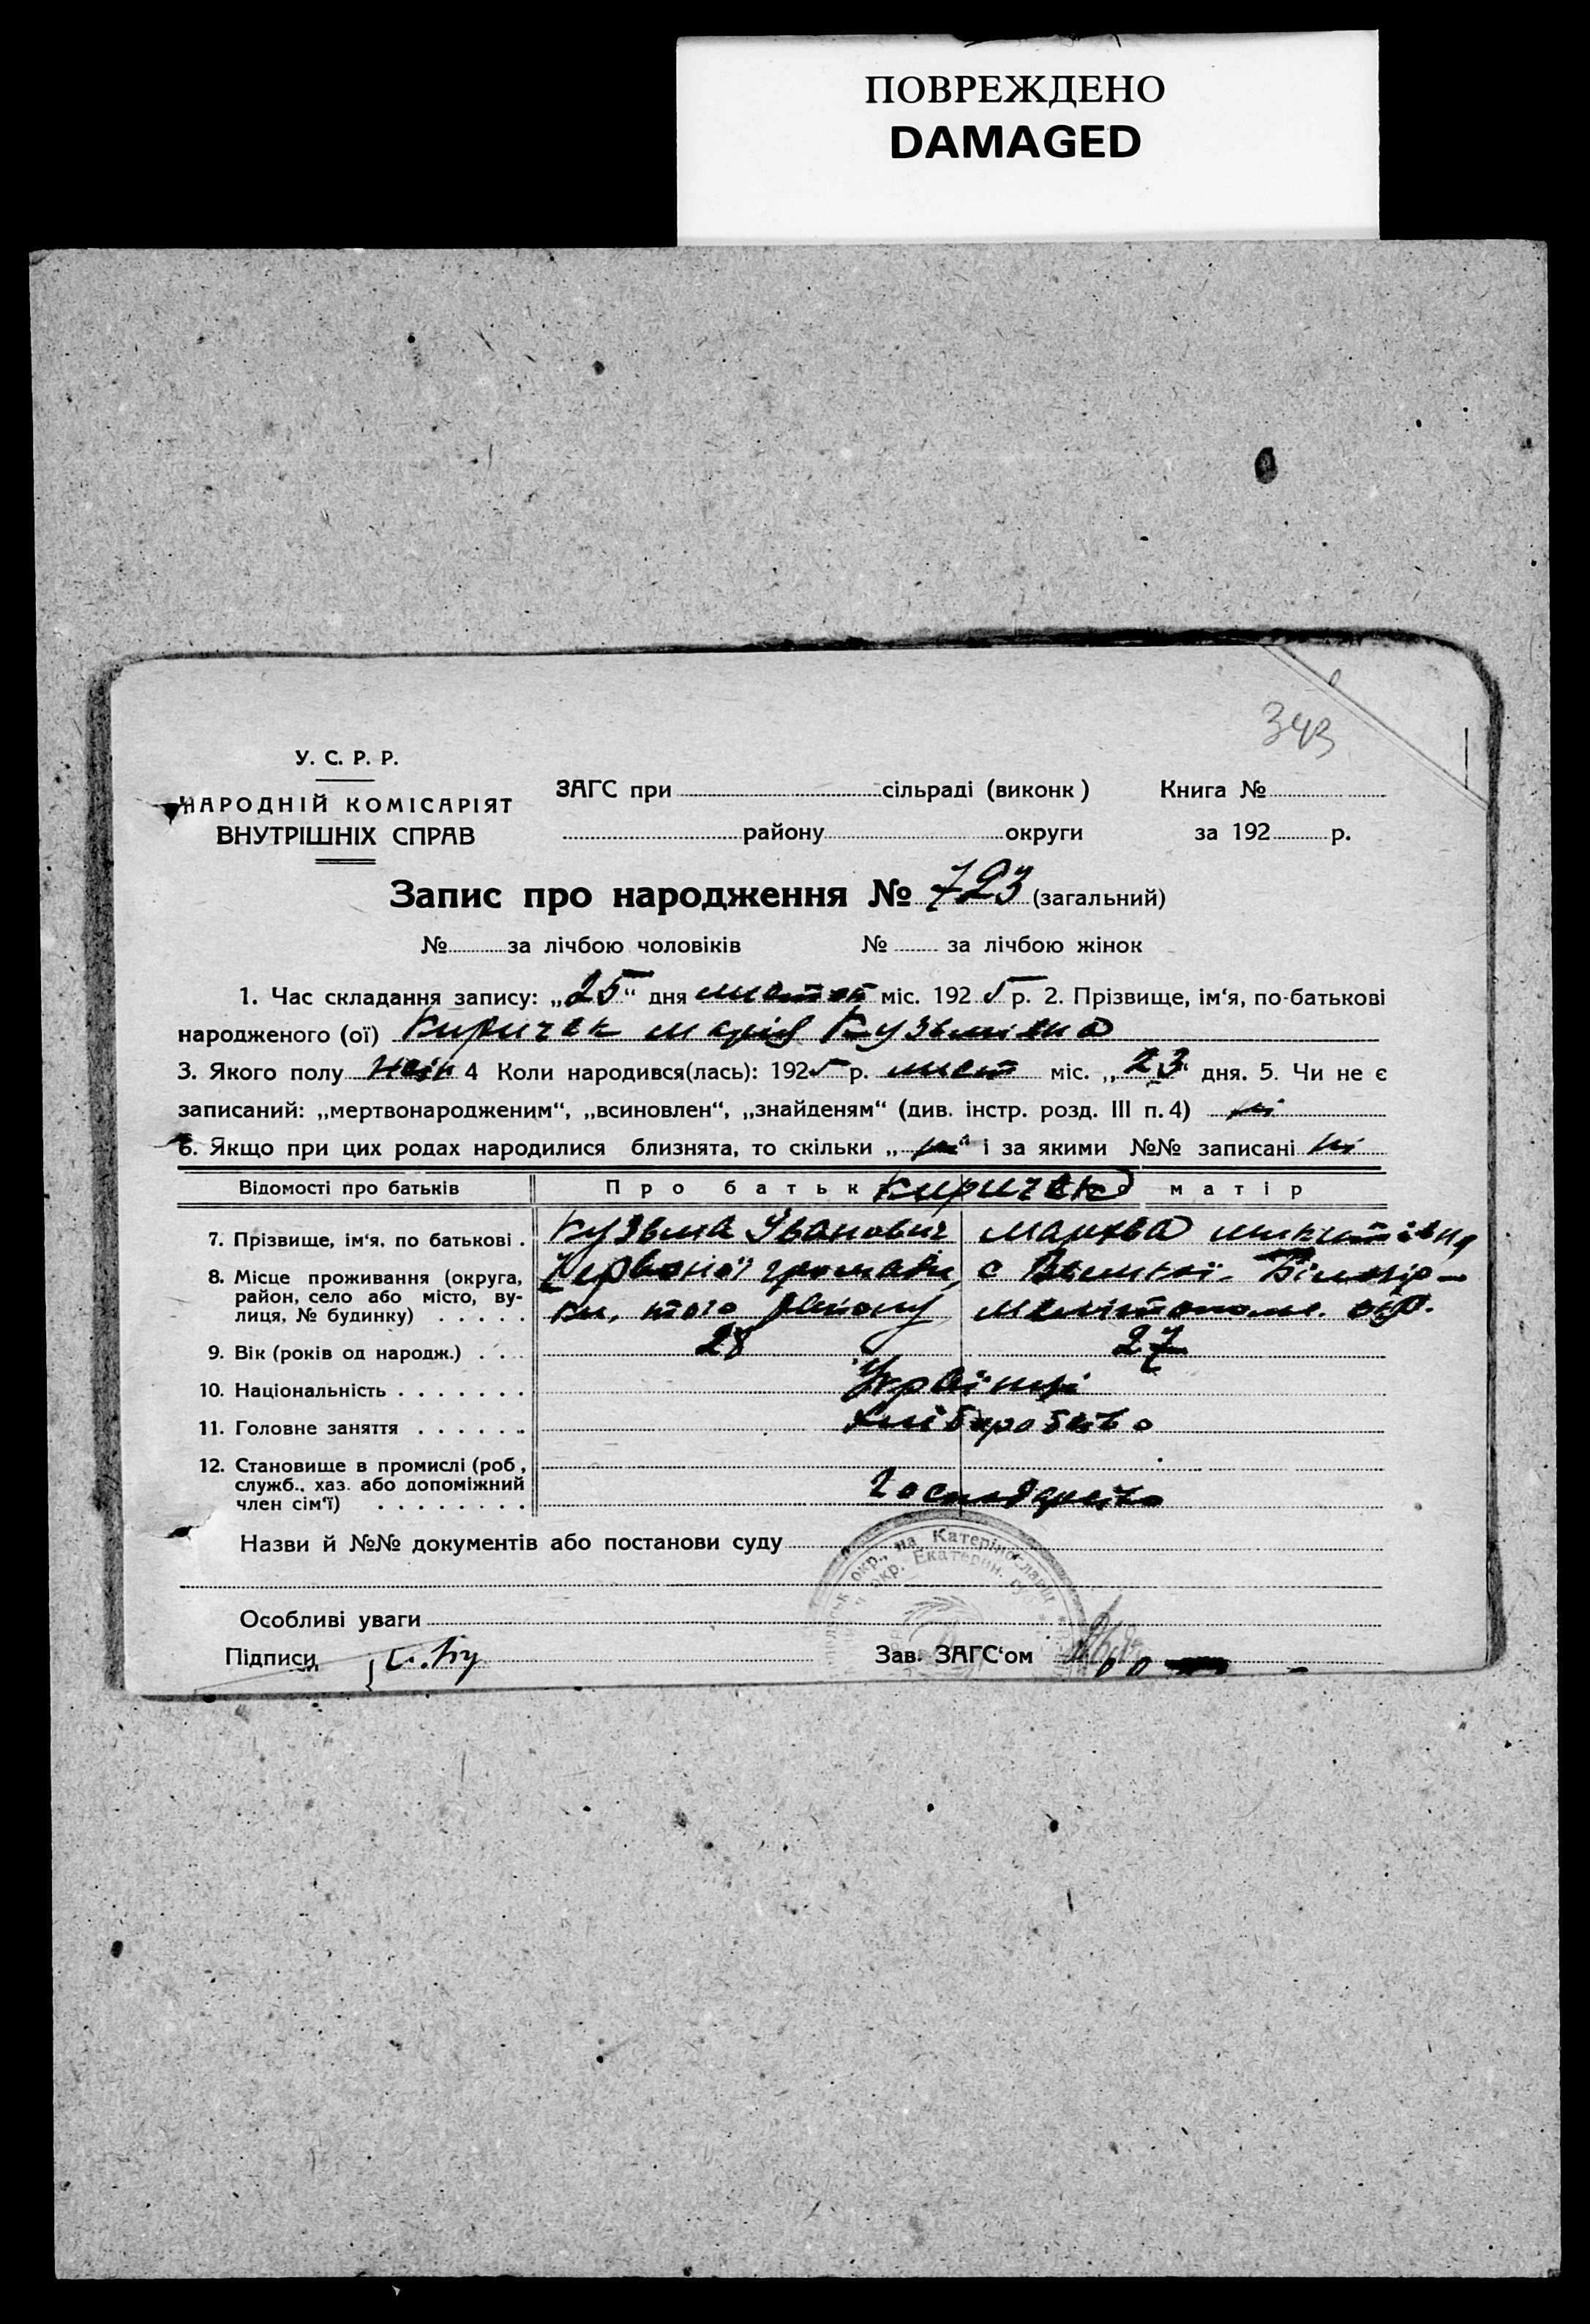 ПОВРЕЖДЕНО
DAMAGED
343
У. С. Р. Р.
НАРОДНІЙ КОМІСАРІЯТ
ВНУТРІШНІХ СПРАВ
ЗАГС при сільраді (виконк) Книга №
району округи за 192 р.
Запис про народження № 723 (загальний)
№ за лічбою чоловіків № за лічбою жінок
1. Час складання запису: „25“ дня міс. 1925 р. 2. Прізвище, ім‘я, по-батькові
народженого (ої) Киричек Марія Кузьмівна
3. Якого полу жін 4 Коли народився(лась): 1925 р. лист міс. „23“ дня. 5. Чи не є
записаний: „мертвонародженим“, „всиновлен“, „знайденям“ (див. інстр. розд. III п. 4) ні
6. Якщо при цих родах народилися близнята, то скільки „ні“ і за якими №№ записані ні
Відомості про батьків Про батьк Киричек матір
7. Прізвище, ім‘я, по батькові . Кузьма Іванович Микитівна
8. Місце проживання (округа, район, село або місто, вулиця, № будинку) . . . . . с Великої Білозір-
ки, того району Мелітополь. окр.
9. Вік (років од народж.) . . . 28 27
10. Національність . . . . . . . Українці
11. Головне заняття . . . . . . Хліборобство
12. Становище в промислі (роб,
служб., хаз. або допоміжний
член сім‘ї) . . . . . . . . Господарство
Назви й №№ документів або постанови суду
окр., на Катеринославщ
окр. Екатерин. губ
Особливі уваги
Підписи Зав. ЗАГС‘ом